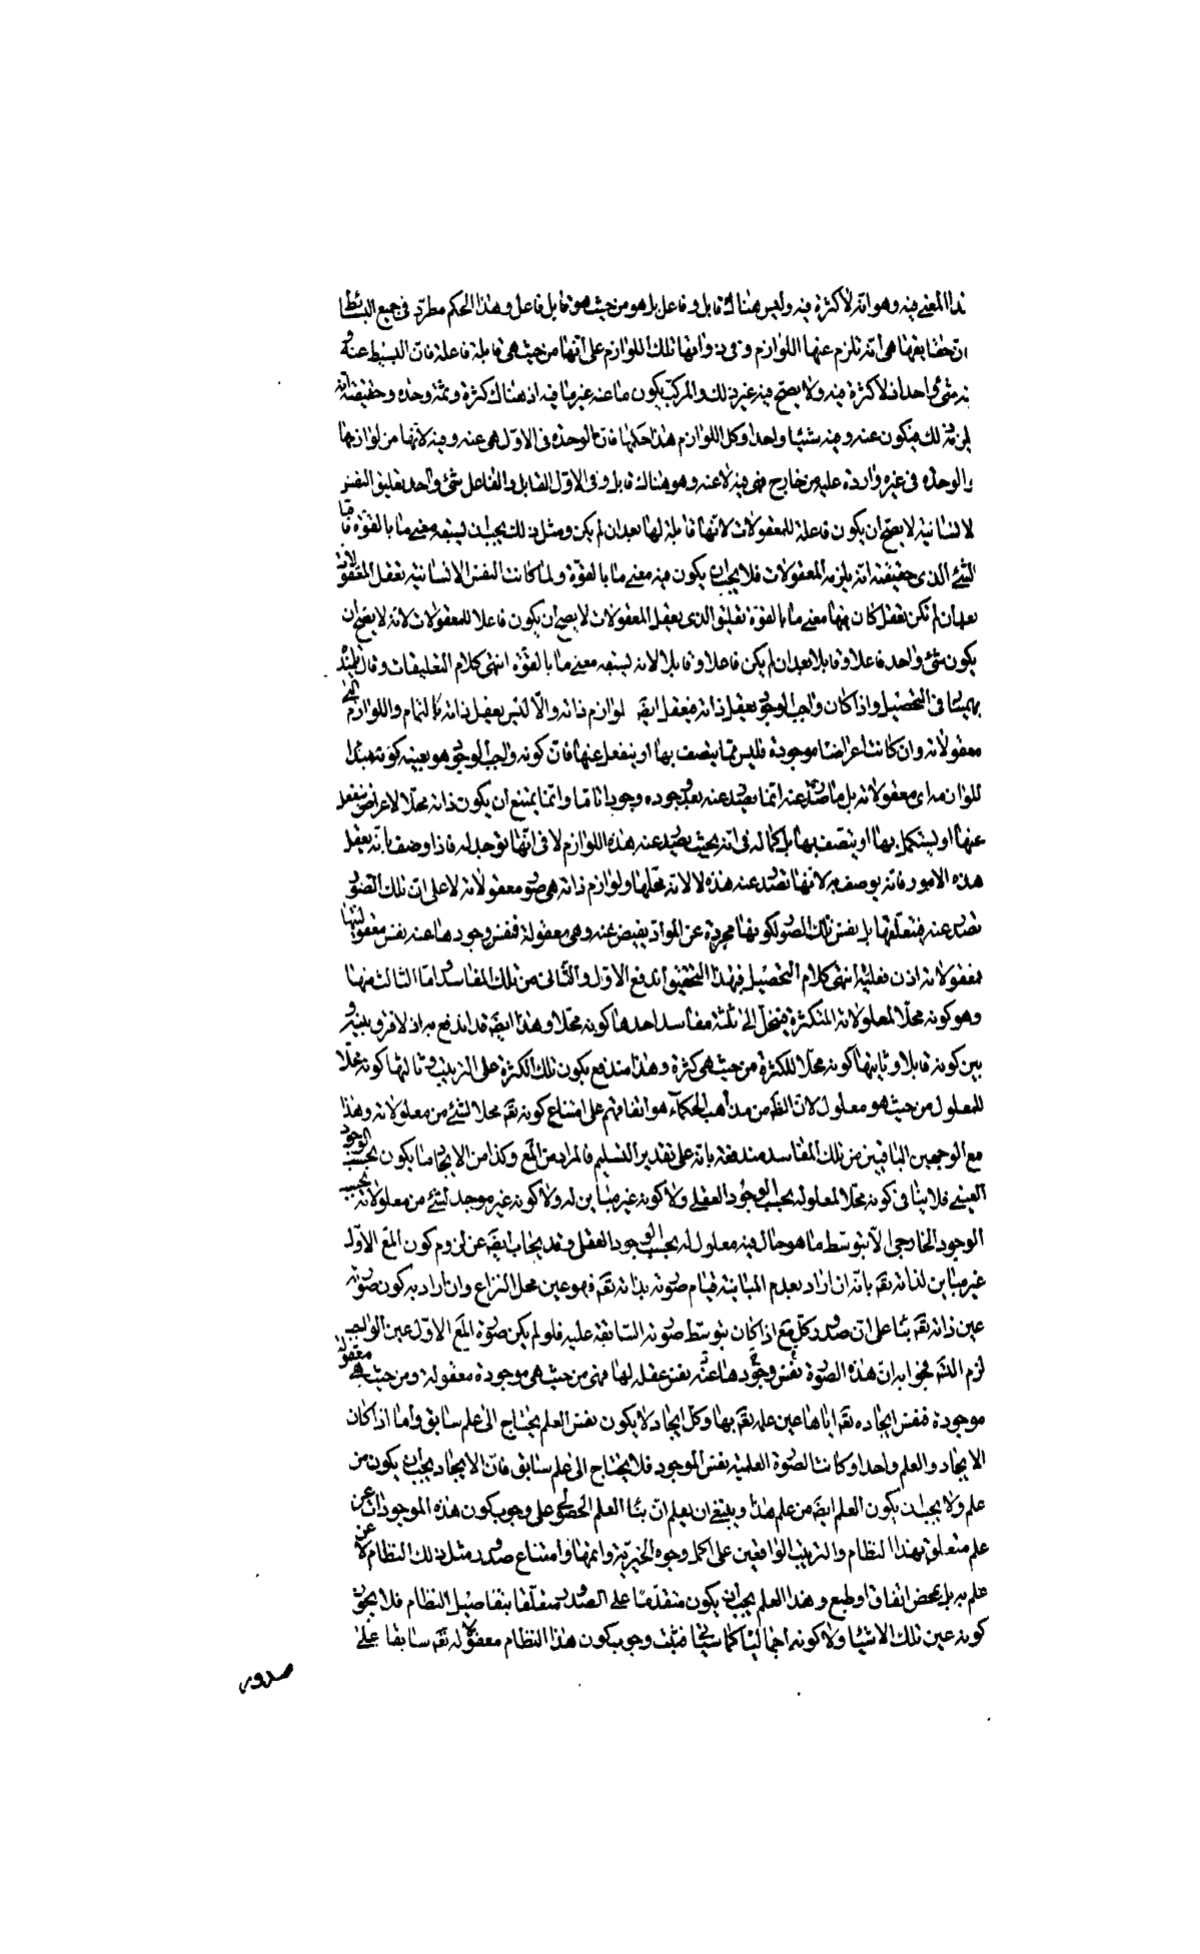 هذا المعنى فيه وهو انه لا كثرة فيه وليس هناك قابل وفاعل بل هو من حيث هو قابل فاعل وهذا الحكم مطرد فى جميع البسائط
فان حقايقها هى انه تلزم عنها اللوازم وفى ذواتها تلك اللوازم على انها من حيث هى قابلة فاعلة فان البسيط عنه و
فيه شئ واحد اذ لا كثرة فيه ولا يصح فيه غير ذلك والمركب يكون ما عنه غير ما فيه اذ هناك كثرة وثمة وحدة وحقيقته انه
يلزمه ذلك فيكون عنه وفيه شيئا واحدا وكل اللوازم هذا حكمها فان الوحدة فى الاول هى عنه وفيه لانها من لوازمها
والوحدة فى غيره واردة عليه من خارج فهى فيه لا عنه وهو هناك قابل وفى الاول القابل والفاعل شئ واحد تعليق النفس
الانسانية لا يصح ان يكون فاعلة للمعقولات لانها قابلة لها بعد ان لم يكن ومثل ذلك يجب ان يسبقه معنى ما بالقوة فاما
الشئ الذى حقيقته انه يلزمه المعقولات فلا يجب ان يكون فيه معنى ما بالقوة ولما كانت النفس الانسانية تعقل المعقولات
بعد ان لم تكن تعقل كان فيها معنى ما بالقوة تعليق الذى يعقل المعقولات لا يصح ان يكون فاعلا للمعقولات لانه لا يصح ان
يكون شئ واحد فاعلا وقابلا بعد ان لم يكن فاعلا وقابلا لانه يسبقه معنى ما بالقوة انتهى كلام التعليقات وقال تلميذه
بهمنيار فى التحصيل واذا كان واجب الوجود يعقل ذاته فيعقل ايضه لوازم ذاته والا ليس يعقل ذاته بالتمام واللوازم التى
معقولاته وان كانت اعراضا موجودة فليس مما يتصف بها او ينفعل عنها فان كونه واجب الوجود هو بعينه كونه مبدأ
للوازمه اى معقولاته بل ما يصدر عنه انما يصدر عنه بعد وجوده وجودا تاما وانما يمتنع ان يكون ذاته محلا لاعراض ينفعل
عنها او يستكمل بها او يتصف بها بل كماله فى انه بحيث يصدر عنه هذه اللوازم لا فى انها توجد له فاذا وصف بانه يعقل
هذه الامور فانه يوصف به لانها تصدر عنه هذه لا لانه محلها ولوازم ذاته هى صور معقولاته لا على ان تلك الصور
تصدر عنه فيتعقلها بل نفس تلك الصور لكونها مجردة عن المواد يفيض عنه وهى معقولة فنفس وجودها عنه نفس معقوليتها
فمعقولاته اذن فعلية انتهى كلام التحصيل فبهذا التحقيق اندفع الاول والثانى من تلك المفاسد واما الثالث منها
وهو كونه محلا لمعلولاته المتكثرة فينحل الى ثلثة مفاسد احدها كونه محلا وهذا ايضه قد اندفع به اذ لا فرق بينه و
بين كونه قابلا وثانيها كونه محلا للكثرة من حيث هى كثرة وهذا مندفع بكون تلك الكثرة على الترتيب وثالثها كونه محلا
للمعلول من حيث هو معلول لان الظه من مذاهب الحكماء هو اتفاقهم على امتناع كونه تقه محلا لشئ من معلولاته وهذا
مع الوجهين الباقيين من تلك المفاسد مندفعة بانه على تقدير التسليم فالمراد من المع وكذا من الايجاد ما يكون بحسب الوجود
العينى فلا ينافى كونه محلا لمعلوله بحسب الوجود العقلى ولا كونه غير مباين له ولا كونه غير موجد لشئ من معلولاته بحسب
الوجود الخارجى الا بتوسط ما هو حال فيه معلول له بحسب الوجود العقلى وقد يجاب ايضه عن لزوم كون المع الاول
غير مباين لذاته تقه بانه ان اراد بعدم المباينة قيام صوره بذاته تقه فهو عين محل النزاع وان اراد به كون صوره
عين ذاته تقه بناء على ان صدور كل مع اذا كان بتوسط صورته السابقة عليه فلو لم يكن صورة المع الاول عين الواجب
لزم التسه فجوابه ان هذه الصورة نفس وجودها عنه نفس عقله لها فهى من حيث هى موجودة معقولة ومن حيث هى معقولة
موجودة فنفس ايجاده تقه اياها عين علمه تقه بها وكل ايجاد لا يكون نفس العلم يحتاج الى علم سابق واما اذا كان
الايجاد والعلم واحدا وكانت الصورة العلمية نفس الموجود فلا يحتاج الى علم سابق فان الايجاد يجب ان يكون من
علم ولا يجب ان يكون العلم ايضه من علم هذا وينبغى ان يعلم ان بناء العلم الحصولى على وجوب كون هذه الموجودات عن
علم متعلق بهذا النظام والترتيب الواقعين على اكمل وجوه الخيرية واتمها وامتناع صدور مثل ذلك النظام لا عن
علم به بل بمحض اتفاق او طبع وهذا العلم يجب ان يكون متقدما على الصدور متعلقا بتفاصيل النظام فلا يجوز
كونه عين تلك الاشياء ولا كونه اجماليا كما سياتى فثبت وجوب كون هذا النظام معقولا له تقه سابقا على
صدوره